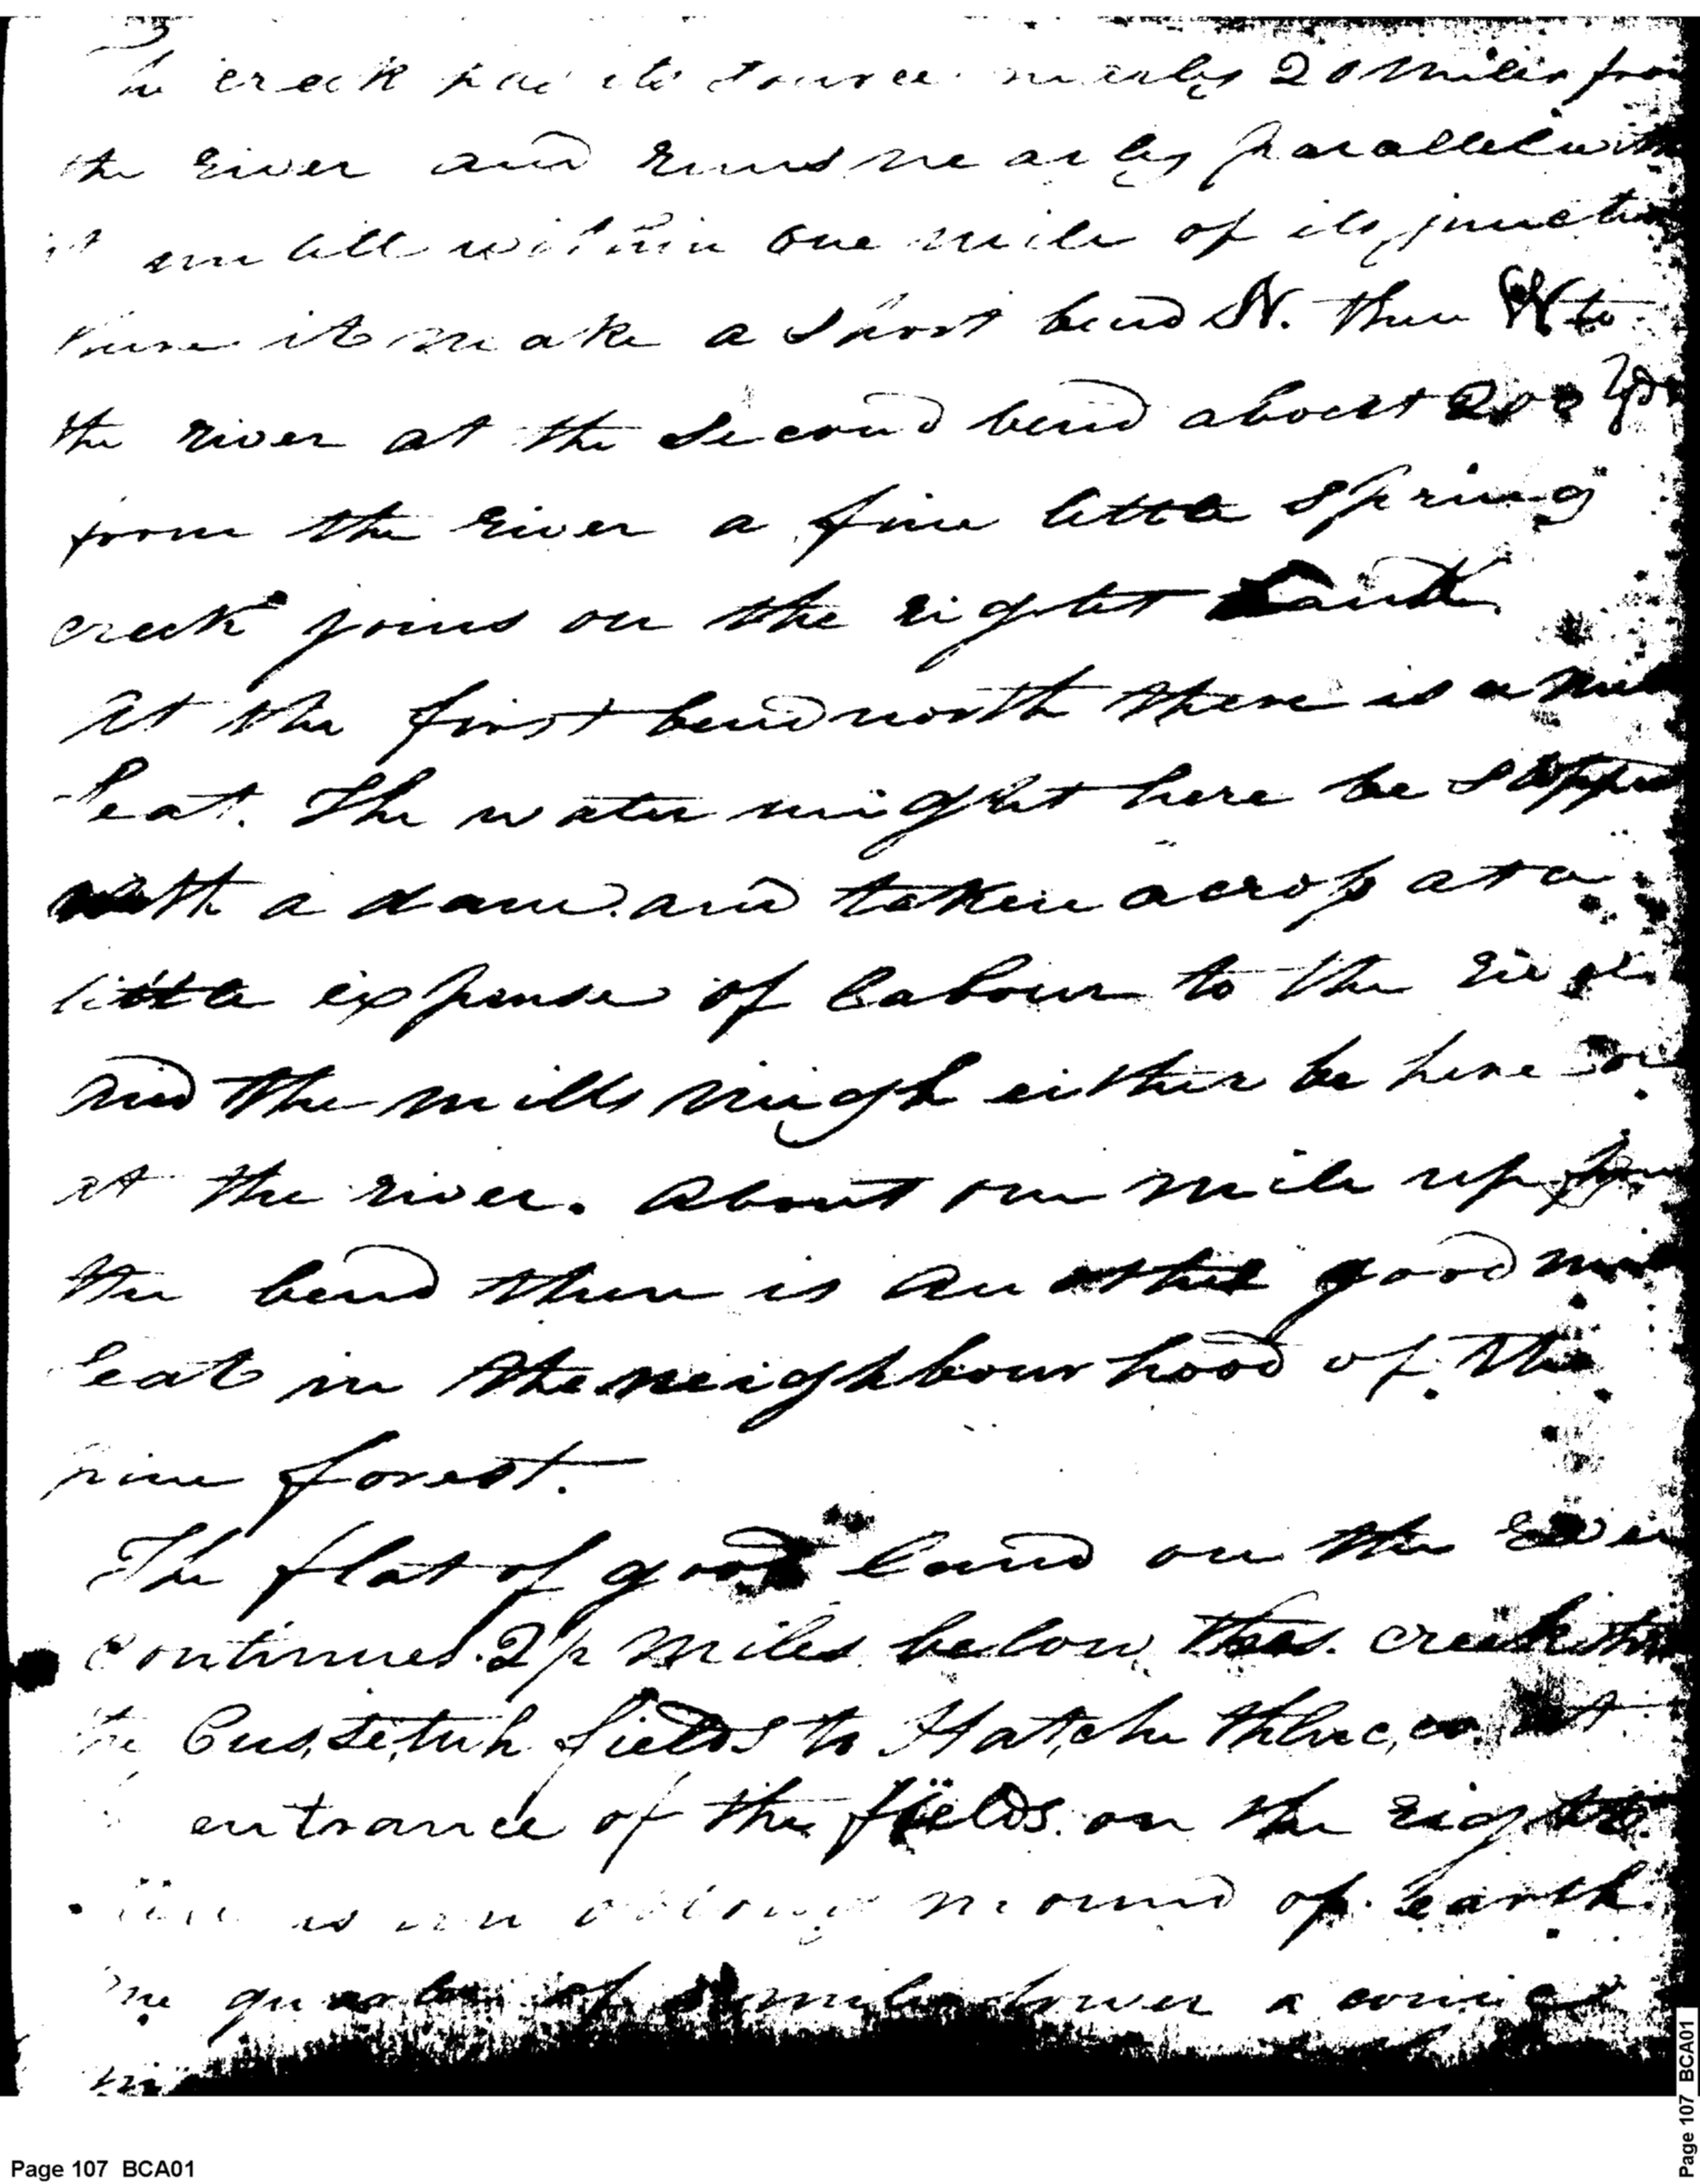 creek has its source nearly 20 miles from
the river and runs nearly parallel with
it untill within one mile of its junction
it make a short bend N. then W to
the river at the second bend about 200 yds
from the river a fine little spring
creek joins on the right bank
At the first bend north there is a mill
seat. The water might here be stopped
with a dam and taken across at a
little expense of labour to the river
and the mills migh either be here or
at the river. About one mile up from
the bend there is an other good mill
seat in the neighbourhood of the
pine forest.
The flat of good land on the river
continues 2½ miles below this creek thro
the Cussetuh fields to Hatche thlucco. at
entrance of the fields on the right
there is an oblong mound of earth
one quarter of a mile lower a conic
Page 107 BCA01
Page 107 BCA01